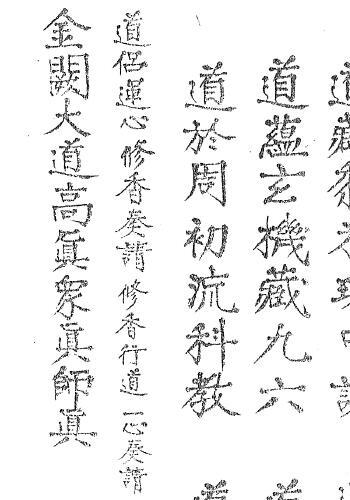 道蘊玄機藏九六
道於周初流科教
道侶運心修香奏請 修香行道 一心奏請
金闕大道高眞衆眞師眞